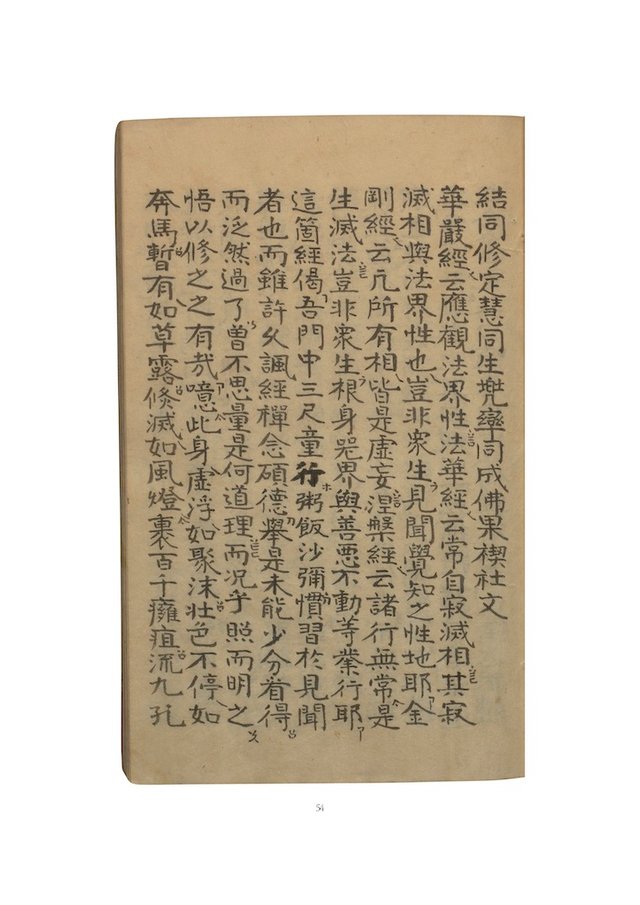 結同修定慧同生兜率同成佛果稧社文
華嚴經云應觀法界性法華經云常自寂滅相其寂
滅相與法界性也豈非衆生見聞覺知之性地耶金
剛經云凡所有相皆是虛妄涅槃經云諸行無常是
生滅法豈非衆生根身器界與善惡不動等業行耶
這箇經偈吾門中三尺童行粥飯沙彌慣習於見聞
者也而雖許久諷經禪念碩德擧是未能少分着得
而泛然過了曾不思量是何道理而況乎照而明之
悟以修之之有哉噫此身虛浮如聚沫壮色不停如
奔馬暫有如草露倐滅如風燈裹百千癰疽流九孔
54